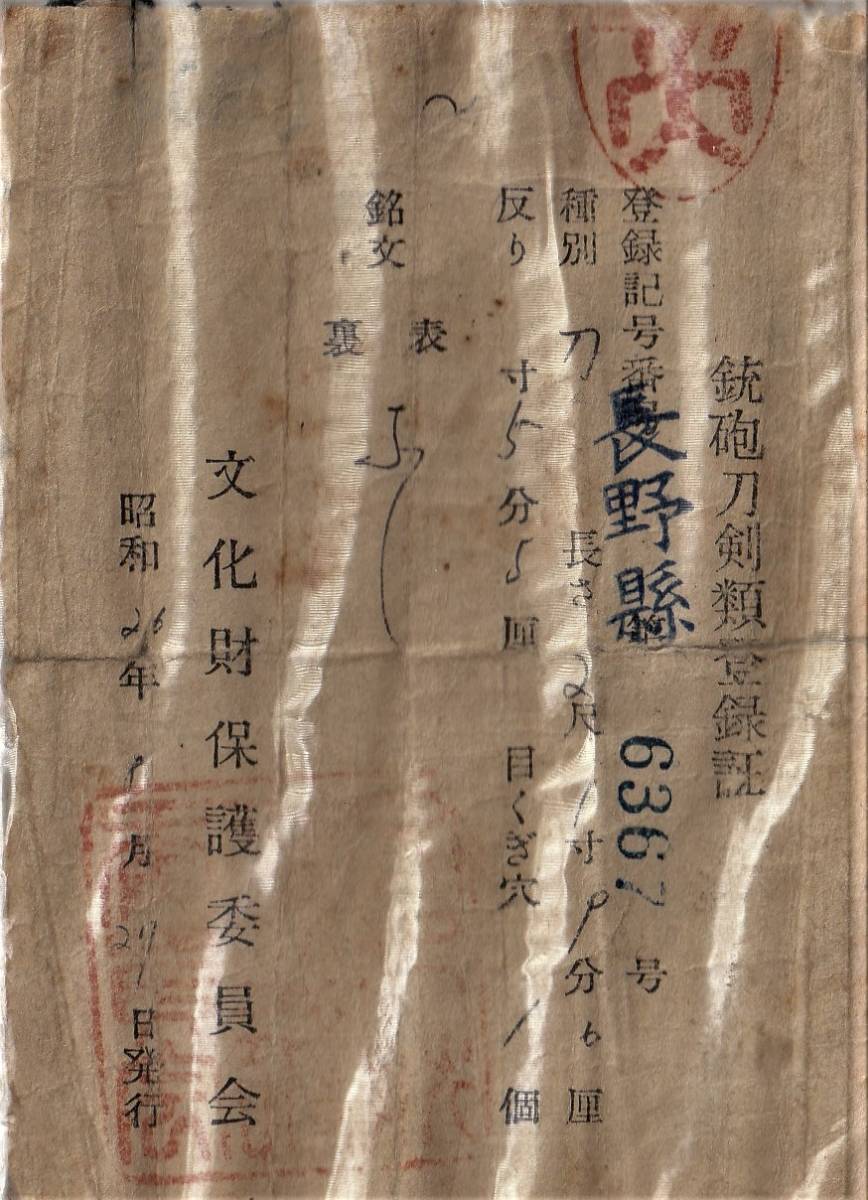 銃砲刀剣類登録証
登録記号番号 長野縣 第 6367 号
種別 刀 長さ 2尺 1寸 9分 6厘
反り 寸 5分 5厘 目くぎ穴 1個
銘文
表
裏
文化財保護委員会
昭和 26年 月 日発行